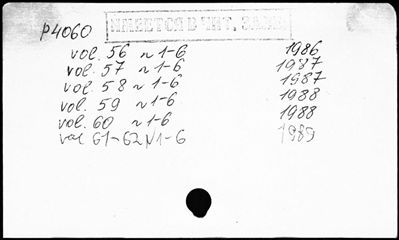 P4060 ИМЕЕТСЯ В ЧИТ. ЗАЛЕ
vol. 56 N 1-6 1986
vol. 57 N 1-6 1987
vol. 58 N 1-6 1987
vol. 59 N 1-6 1988
vol. 60 N 1-6 1988
vol 61-62 N 1-6 1989